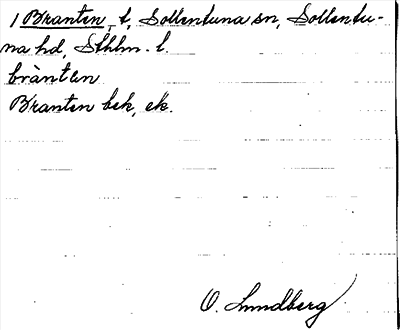 1 Branten, t, Sollentuna sn, Sollentu-
na hd, Sthlm. l.
brànten
Branten bek, ek.
O. Lundberg